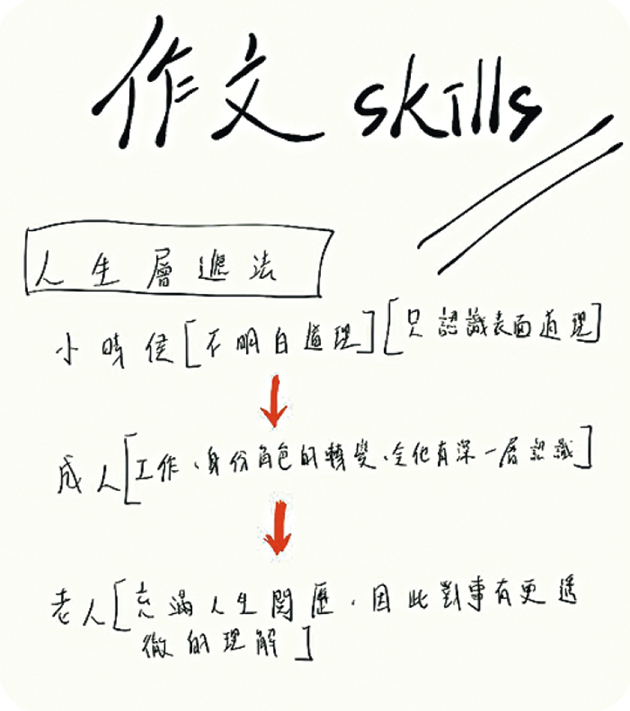 作文 skills
人生層遞法
小時侯[不明白道理][只認識表面道理]
成人[工作、身份角色的轉變、令他有深一層認識]
老人[充滿人生閱歷、因此對事有更透
徹的理解]